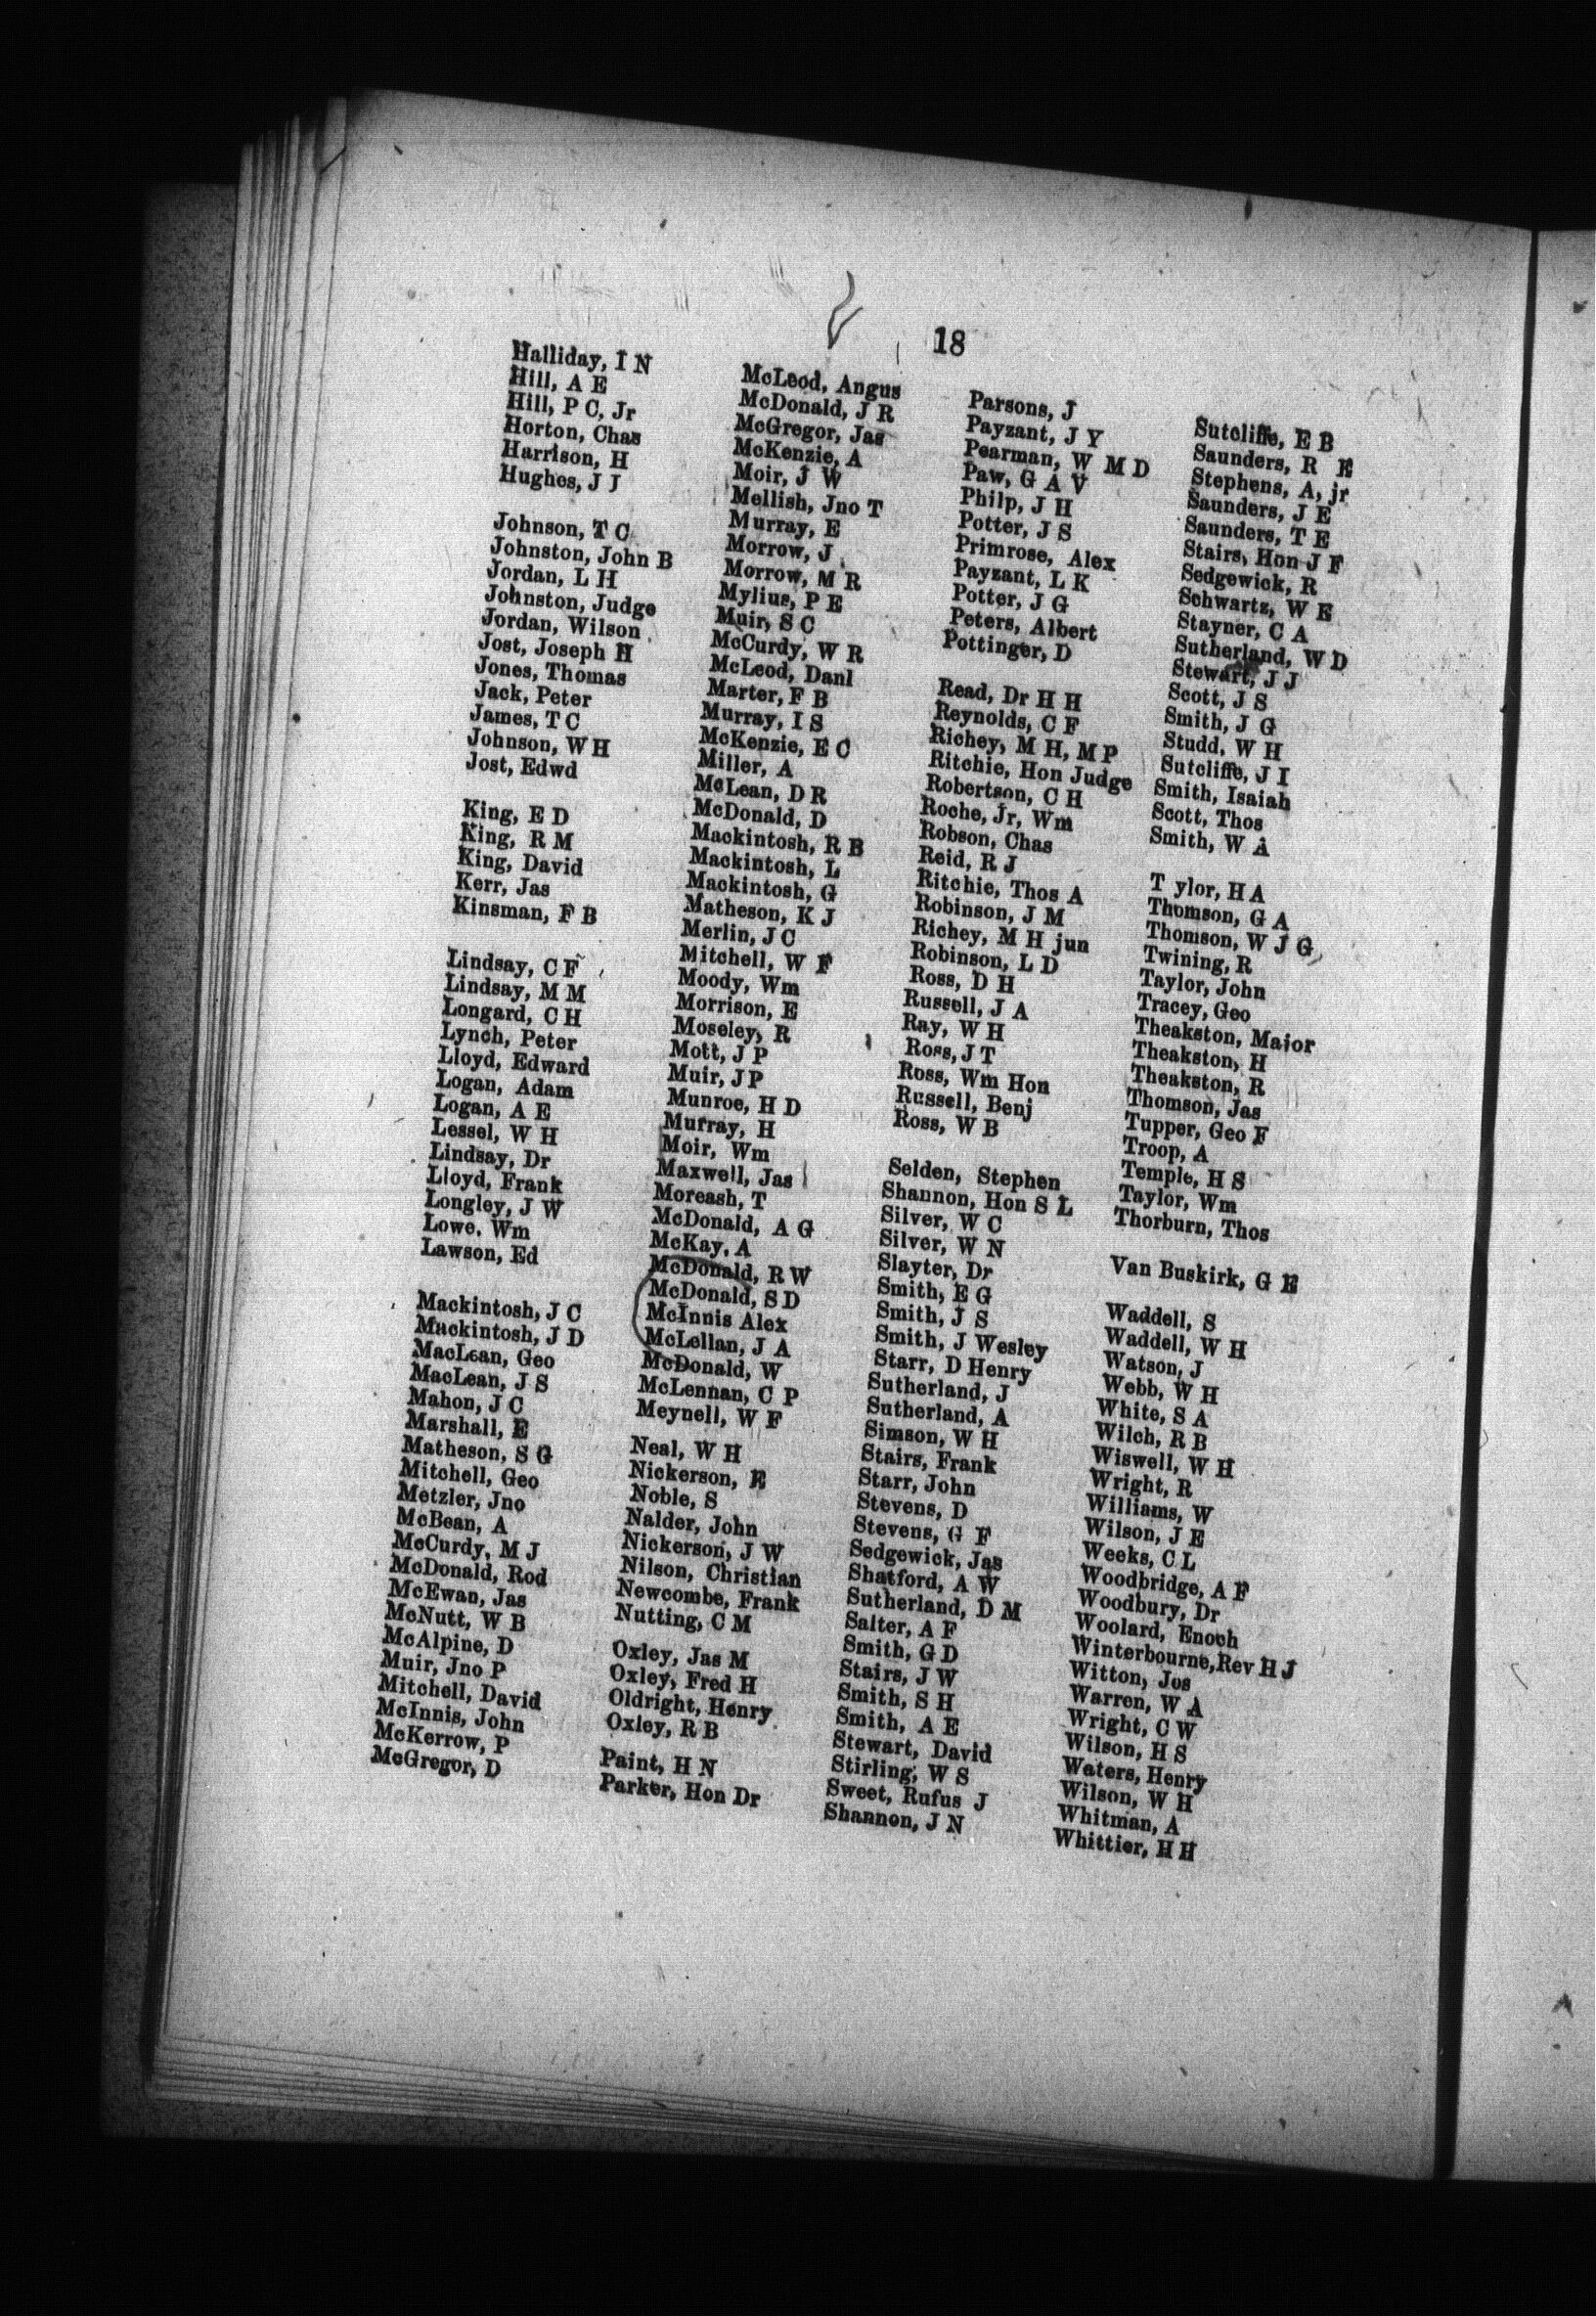 18
Halliday, I N
Hill, A E
Hill, P C, Jr
Horton, Chas
Harrison, H
Hughes, J J
Johnson, T C
Johnston, John B
Jordan, L H
Johnston, Judge
Jordan, Wilson
Jost, Joseph H
Jones, Thomas
Jack, Peter
James, T C
Johnson, W H
Jost, Edwd
King, E D
King, R M
King, David
Kerr, Jas
Kinsman, F B
Lindsay, C F
Lindsay, M M
Longard, C H
Lynch, Peter
Lloyd, Edward
Logan, Adam
Logan, A E
Lessel, W H
Lindsay, Dr
Lloyd, Frank
Longley, J W
Lowe, Wm
Lawson, Ed
Mackintosh, J C
Mackintosh, J D
MacLean, Geo
MacLean, J S
Mahon, J C
Marshall, E
Matheson, S G
Mitchell, Geo
Metzler, Jno
McBean, A
McCurdy, M J
McDonald, Rod
McEwan, Jas
McNutt, W B
McAlpine, D
Muir, Jno P
Mitchell, David
McInnis, John
McKerrow, P
McGregor, D
McLeod, Angus
McDonald, J R
McGregor, Jas
McKenzie, A
Moir, J W
Mellish, Jno T
Murray, E
Morrow, J
Morrow, M R
Mylius, P E
Muir, S C
McCurdy, W R
McLeod, Danl
Marter, F B
Murray, I S
McKenzie, E C
Miller, A
McLean, D R
McDonald, D
Mackintosh, R B
Mackintosh, L
Mackintosh, G
Matheson, K J
Merlin, J C
Mitchell, W F
Moody, Wm
Morrison, E
Moseley, R
Mott, J P
Muir, J P
Munroe, H D
Murray, H
Moir, Wm
Maxwell, Jas
Moreash, T
McDonald, A G
McKay, A
McDonald, R W
McDonald, S D
McInnis Alex
McLellan, J A
McDonald, W
McLennan, C P
Meynell, W F
Neal, W H
Nickerson, E
Noble, S
Nalder, John
Nickerson, J W
Nilson, Christian
Newcombe, Frank
Nutting, C M
Oxley, Jas M
Oxley, Fred H
Oldright, Henry
Oxley, R B
Paint, H N
Parker, Hon Dr
Parsons, J
Payzant, J Y
Pearman, W M D
Paw, G A V
Philp, J H
Potter, J S
Primrose, Alex
Payzant, L K
Potter, J G
Peters, Albert
Pottinger, D
Read, Dr H H
Reynolds, C F
Richey, M H, M P
Ritchie, Hon Judge
Robertson, C H
Roche, Jr, Wm
Robson, Chas
Reid, R J
Ritchie, Thos A
Robinson, J M
Richey, M H jun
Robinson, L D
Ross, D H
Russell, J A
Ray, W H
Ross, J T
Ross, Wm Hon
Russell, Benj
Ross, W B
Selden, Stephen
Shannon, Hon S L
Silver, W C
Silver, W N
Slayter, Dr
Smith, E G
Smith, J S
Smith, J Wesley
Starr, D Henry
Sutherland, J
Sutherland, A
Simson, W H
Stairs, Frank
Starr, John
Stevens, D
Stevens, G F
Sedgewick, Jas
Shatford, A W
Sutherland, D M
Salter, A F
Smith, G D
Stairs, J W
Smith, S H
Smith, A E
Stewart, David
Stirling, W S
Sweet, Rufus J
Shannon, J N
Sutcliffe, E B
Saunders, R E
Stephens, A, jr
Saunders, J E
Saunders, T E
Stairs, Hon J F
Sedgewick, R
Schwartz, W E
Stayner, C A
Sutherland, W D
Stewart, J J
Scott, J S
Smith, J G
Studd, W H
Sutcliffe, J I
Smith, Isaiah
Scott, Thos
Smith, W A
T ylor, H A
Thomson, G A
Thomson, W J G
Twining, R
Taylor, John
Tracey, Geo
Theakston, Major
Theakston, H
Theakston, R
Thomson, Jas
Tupper, Geo F
Troop, A
Temple, H S
Taylor, Wm
Thorburn, Thos
Van Buskirk, G E
Waddell, S
Waddell, W H
Watson, J
Webb, W H
White, S A
Wilch, R B
Wiswell, W H
Wright, R
Williams, W
Wilson, J E
Weeks, C L
Woodbridge, A F
Woodbury, Dr
Woolard, Enoch
Winterbourne, Rev H J
Witton, Jos
Warren, W A
Wright, C W
Wilson, H S
Waters, Henry
Wilson, W H
Whitman, A
Whittier, H H